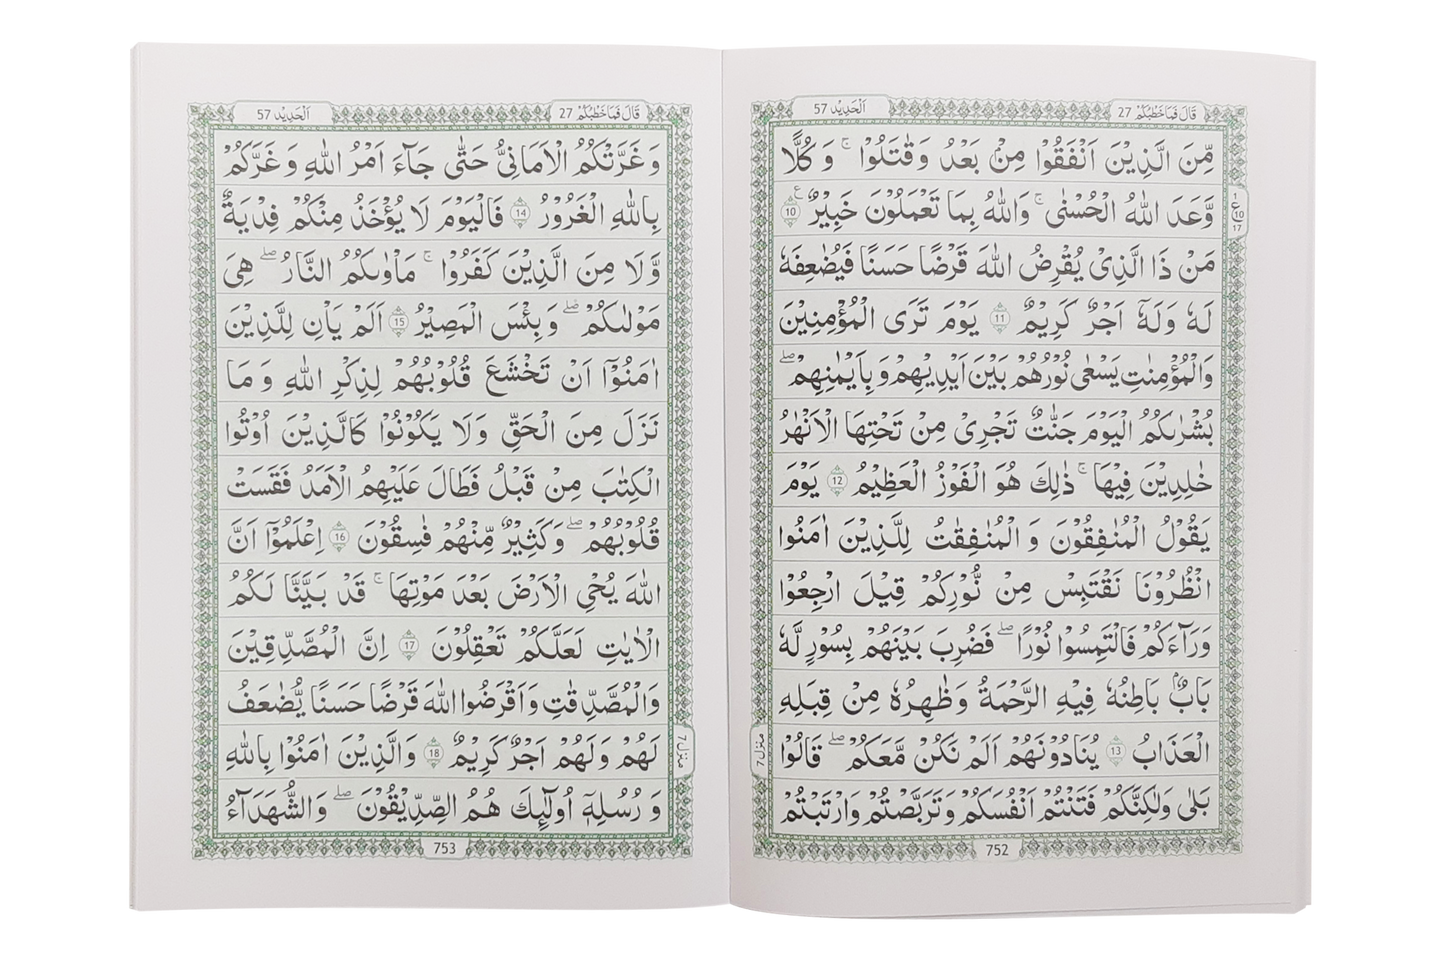 قَالَ فَمَا خَطْبُكُمْ 27
اَلْحَدِیْد 57
مِّنَ الَّذِیْنَ اَنْفَقُوْا مِنْۢ بَعْدُ وَقٰتَلُوْا ۚ وَ كُلًّا
وَّعَدَ اللّٰهُ الْحُسْنٰی ۚ وَاللّٰهُ بِمَا تَعْمَلُوْنَ خَبِیْرٌ 10 ع
مَنْ ذَا الَّذِیْ یُقْرِضُ اللّٰهَ قَرْضًا حَسَنًا فَیُضٰعِفَهٗ
لَهٗ وَلَهٗۤ اَجْرٌ كَرِیْمٌ 11 یَوْمَ تَرَی الْمُؤْمِنِیْنَ
وَالْمُؤْمِنٰتِ یَسْعٰی نُوْرُهُمْ بَیْنَ اَیْدِیْهِمْ وَ بِاَیْمٰنِهِمْ ۖ
بُشْرٰىكُمُ الْیَوْمَ جَنّٰتٌ تَجْرِیْ مِنْ تَحْتِهَا الْاَنْهٰرُ
خٰلِدِیْنَ فِیْهَا ۚ ذٰلِكَ هُوَ الْفَوْزُ الْعَظِیْمُ 12 یَوْمَ
یَقُوْلُ الْمُنٰفِقُوْنَ وَ الْمُنٰفِقٰتُ لِلَّذِیْنَ اٰمَنُوا
انْظُرُوْنَا نَقْتَبِسْ مِنْ نُّوْرِكُمْ قِیْلَ ارْجِعُوْا
وَرَآءَكُمْ فَالْتَمِسُوْا نُوْرًا ۖ فَضُرِبَ بَیْنَهُمْ بِسُوْرٍ لَّهٗ
بَابٌۢ بَاطِنُهٗ فِیْهِ الرَّحْمَةُ وَظٰهِرُهٗ مِنْ قِبَلِهِ
الْعَذَابُ 13 یُنَادُوْنَهُمْ اَلَمْ نَكُنْ مَّعَكُمْ ۖ قَالُوْا
بَلٰی وَلٰكِنَّكُمْ فَتَنْتُمْ اَنْفُسَكُمْ وَتَرَبَّصْتُمْ وَارْتَبْتُمْ
1
ع
10
17
منزل 7
752
قَالَ فَمَا خَطْبُكُمْ 27
اَلْحَدِیْد 57
وَ غَرَّتْكُمُ الْاَمَانِیُّ حَتّٰی جَآءَ اَمْرُ اللّٰهِ وَ غَرَّكُمْ
بِاللّٰهِ الْغَرُوْرُ 14 فَالْیَوْمَ لَا یُؤْخَذُ مِنْكُمْ فِدْیَةٌ
وَّلَا مِنَ الَّذِیْنَ كَفَرُوْا ۚ مَاْوٰىكُمُ النَّارُ ۖ هِیَ
مَوْلٰىكُمْ ۖ وَ بِئْسَ الْمَصِیْرُ 15 اَلَمْ یَاْنِ لِلَّذِیْنَ
اٰمَنُوْۤا اَنْ تَخْشَعَ قُلُوْبُهُمْ لِذِكْرِ اللّٰهِ وَ مَا
نَزَلَ مِنَ الْحَقِّ وَلَا یَكُوْنُوْا كَالَّذِیْنَ اُوْتُوا
الْكِتٰبَ مِنْ قَبْلُ فَطَالَ عَلَیْهِمُ الْاَمَدُ فَقَسَتْ
قُلُوْبُهُمْ ۖ وَكَثِیْرٌ مِّنْهُمْ فٰسِقُوْنَ 16 اِعْلَمُوْۤا اَنَّ
اللّٰهَ یُحْیِ الْاَرْضَ بَعْدَ مَوْتِهَا ۚ قَدْ بَیَّنَّا لَكُمُ
الْاٰیٰتِ لَعَلَّكُمْ تَعْقِلُوْنَ 17 اِنَّ الْمُصَّدِّقِیْنَ
وَالْمُصَّدِّقٰتِ وَاَقْرَضُوا اللّٰهَ قَرْضًا حَسَنًا یُّضٰعَفُ
لَهُمْ وَلَهُمْ اَجْرٌ كَرِیْمٌ 18 وَالَّذِیْنَ اٰمَنُوْا بِاللّٰهِ
وَ رُسُلِهٖۤ اُولٰٓئِكَ هُمُ الصِّدِّیْقُوْنَ ۖ وَالشُّهَدَآءُ
منزل 7
753